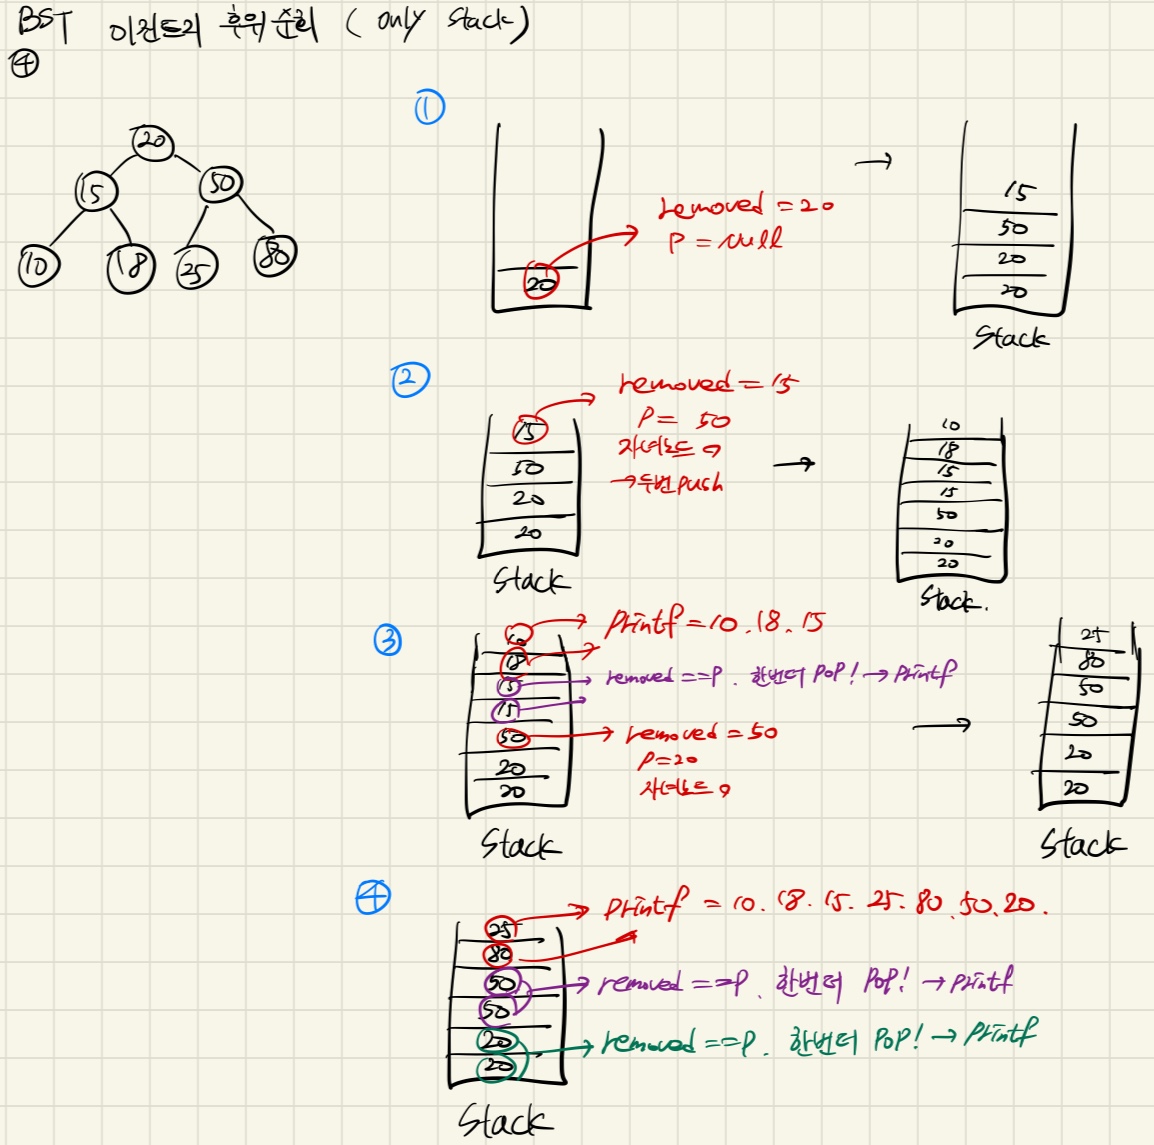 BST 이진트리 후위 순회 ( only stack )
④
20
15 50
10 18 25 80
①
removed = 20
P = null
20
→
15
50
20
20
Stack
②
removed = 15
P = 50
자녀노드 o
→ 두번 push
15
50
20
20
Stack
→
10
18
15
15
50
20
20
Stack.
③
Printf = 10. 18. 15
removed == P. 한번더 POP! → Printf
removed = 50
P = 20
자녀노드 o
10
18
15
15
50
20
20
Stack
→
25
80
50
50
20
20
Stack
④
Printf = 10. 18. 15. 25. 80. 50. 20.
removed == P. 한번더 POP! → Printf
removed == P. 한번더 POP! → Printf
25
80
50
50
20
20
Stack